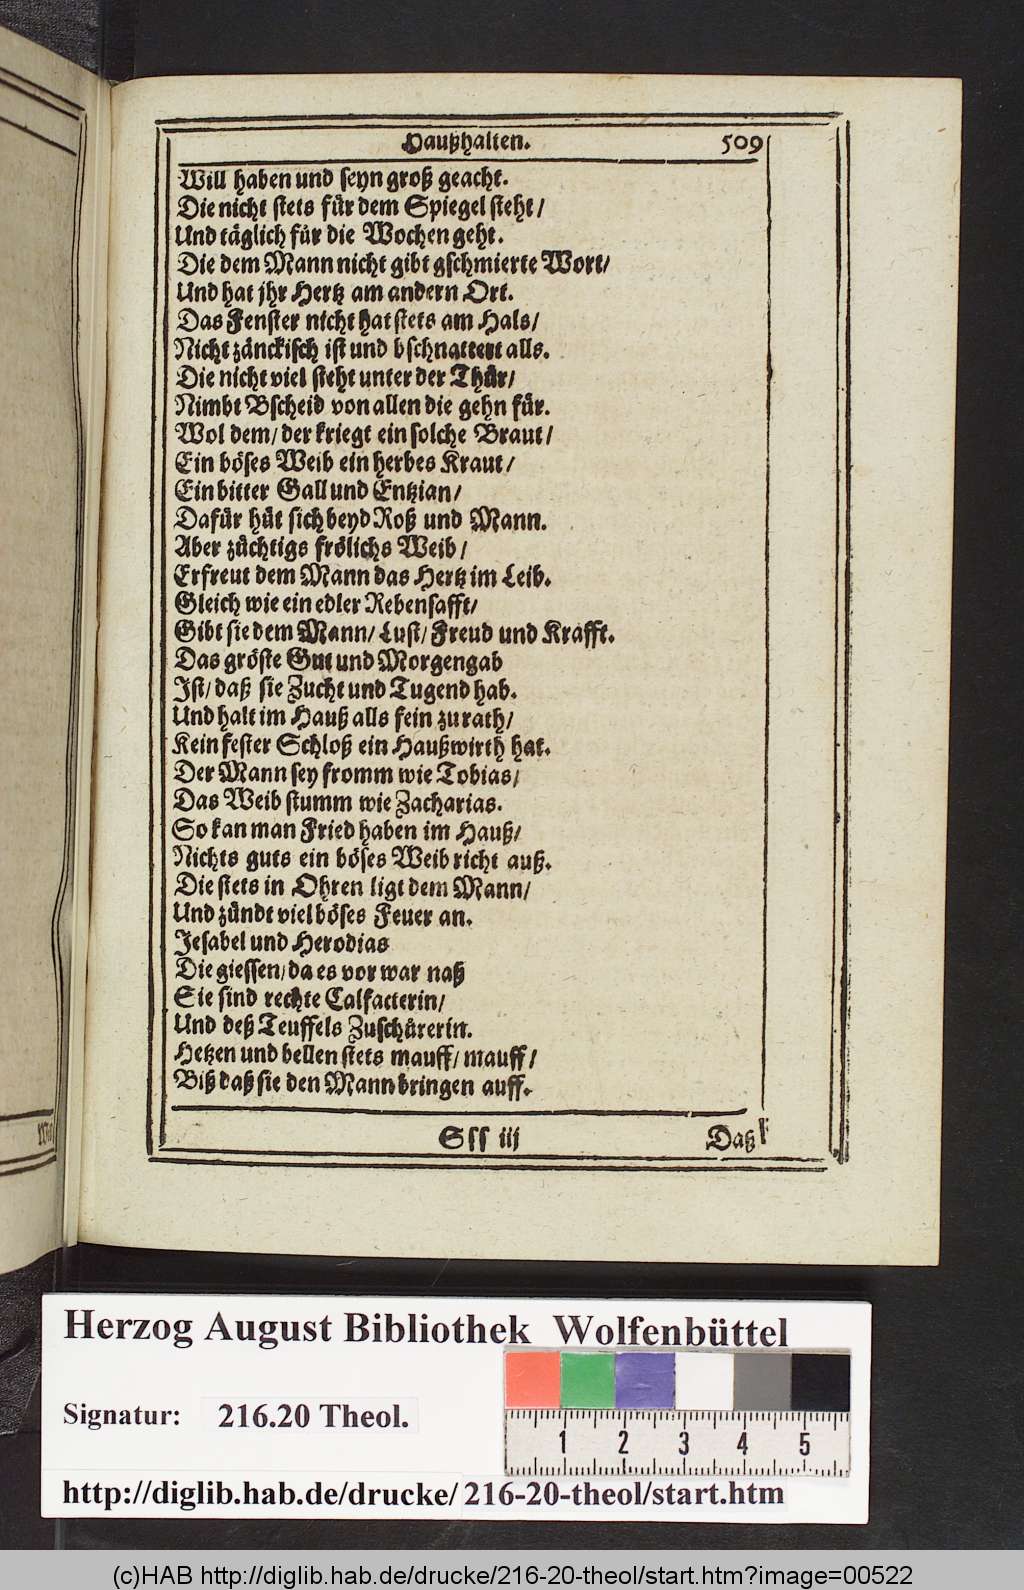 Haußhalten. 509
Will haben und seyn groß geacht.
Die nicht stets für dem Spiegel steht/
Und täglich für die Wochen geht.
Die dem Mann nicht gibt gschmierte Wort/
Und hat jhr Hertz am andern Ort.
Das Fenster nicht hat stets am Hals/
Nicht zänckisch ist und bschnattert alls.
Die nicht viel steht unter der Thür/
Nimbt Bscheid von allen die gehn für.
Wol dem/ der kriegt ein solche Braut/
Ein böses Weib ein herbes Kraut/
Ein bitter Gall und Entzian/
Dafür hüt sich beyd Roß und Mann.
Aber züchtigs frölichs Weib/
Erfreut dem Mann das Hertz im Leib.
Gleich wie ein edler Rebensafft/
Gibt sie dem Mann/ Lust/ Freud und Krafft.
Das gröste Gut und Morgengab
Ist/ daß sie Zucht und Tugend hab.
Und halt im Hauß alls fein zurath/
Kein fester Schloß ein Haußwirth hat.
Der Mann sey fromm wie Tobias/
Das Weib stumm wie Zacharias.
So kan man Fried haben im Hauß/
Nichts guts ein böses Weib richt auß.
Die stets in Ohren ligt dem Mann/
Und zündt viel böses Feuer an.
Jesabel und Herodias
Die giessen/ da es vor war naß
Sie sind rechte Calfacterin/
Und deß Teuffels Zuschürerin.
Hetzen und bellen stets mauff/ mauff/
Biß daß sie den Mann bringen auff.
Sss iij Daß
Herzog August Bibliothek Wolfenbüttel
Signatur: 216.20 Theol.
1 2 3 4 5
http://diglib.hab.de/drucke/216-20-theol/start.htm
(c)HAB http://diglib.hab.de/drucke/216-20-theol/start.htm?image=00522